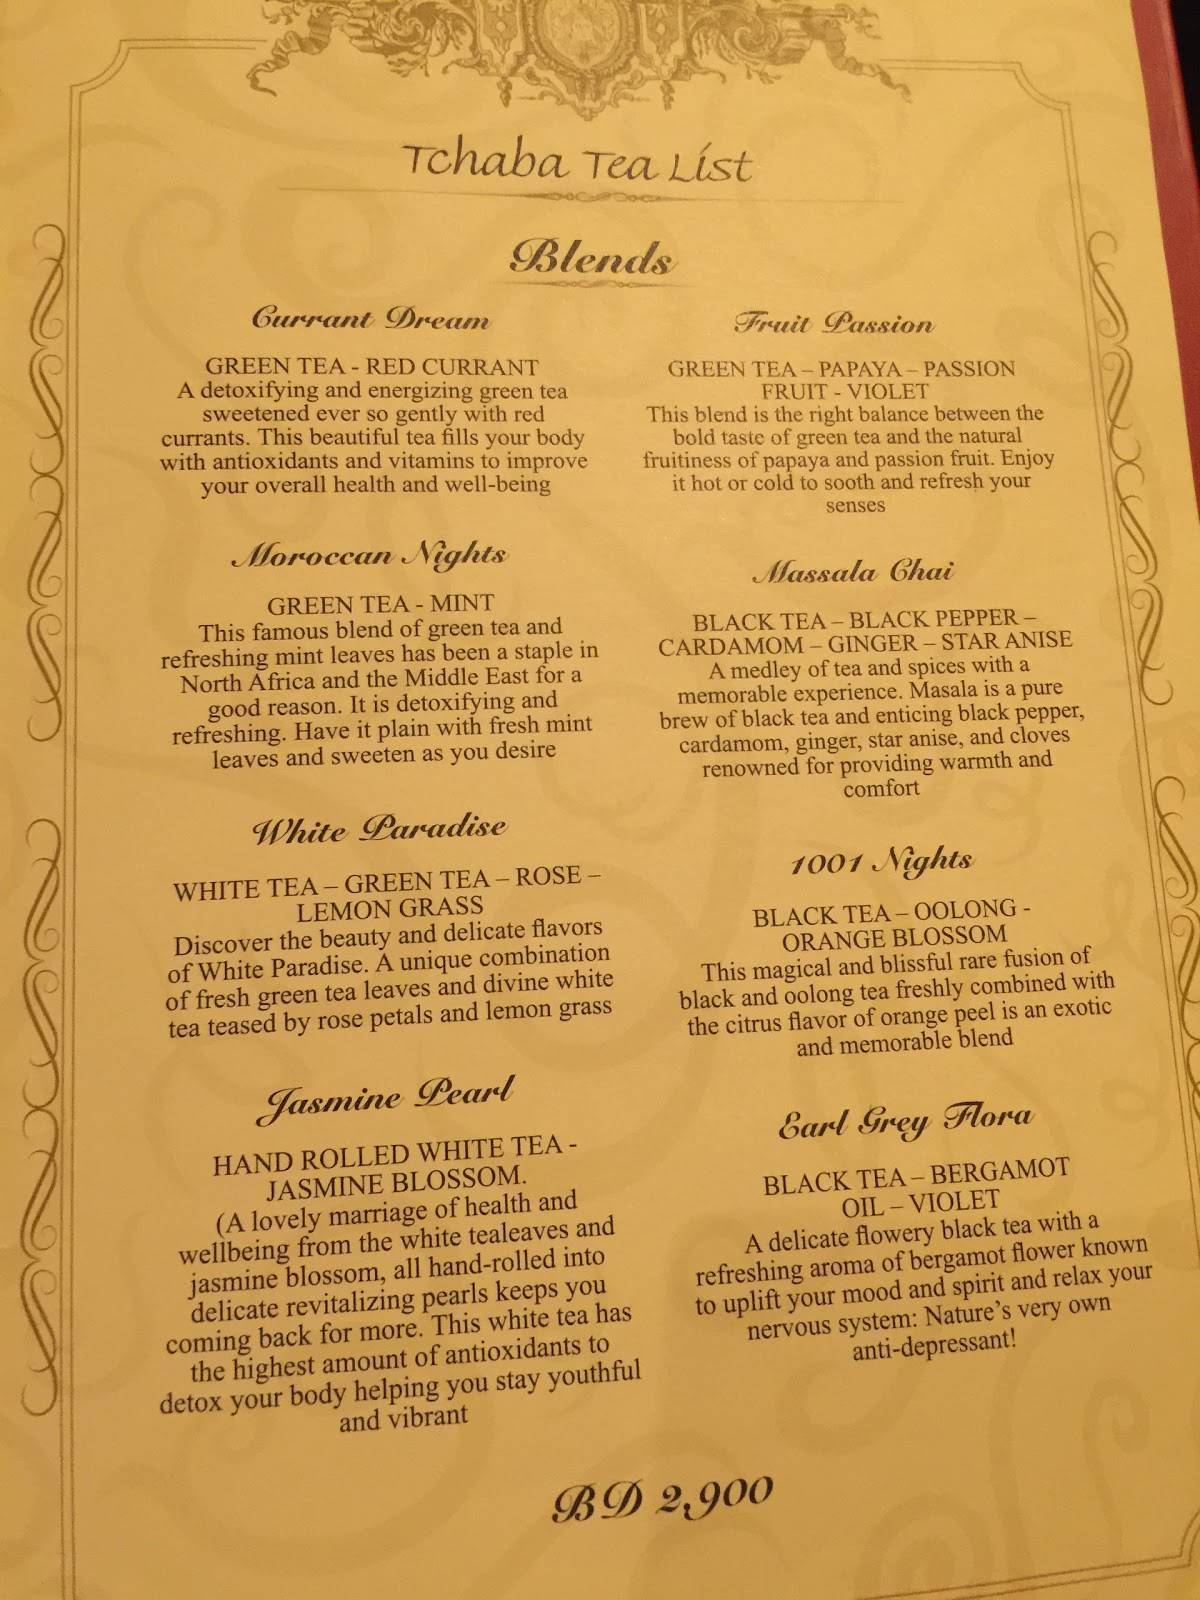 Tchaba Tea List
Blends
Currant Dream
GREEN TEA - RED CURRANT
A detoxifying and energizing green tea
sweetened ever so gently with red
currants. This beautiful tea fills your body
with antioxidants and vitamins to improve
your overall health and well-being
Moroccan Nights
GREEN TEA - MINT
This famous blend of green tea and
refreshing mint leaves has been a staple in
North Africa and the Middle East for a
good reason. It is detoxifying and
refreshing. Have it plain with fresh mint
leaves and sweeten as you desire
White Paradise
WHITE TEA – GREEN TEA – ROSE –
LEMON GRASS
Discover the beauty and delicate flavors
of White Paradise. A unique combination
of fresh green tea leaves and divine white
tea teased by rose petals and lemon grass
Jasmine Pearl
HAND ROLLED WHITE TEA -
JASMINE BLOSSOM.
(A lovely marriage of health and
wellbeing from the white tealeaves and
jasmine blossom, all hand-rolled into
delicate revitalizing pearls keeps you
coming back for more. This white tea has
the highest amount of antioxidants to
detox your body helping you stay youthful
and vibrant
Fruit Passion
GREEN TEA – PAPAYA – PASSION
FRUIT - VIOLET
This blend is the right balance between the
bold taste of green tea and the natural
fruitiness of papaya and passion fruit. Enjoy
it hot or cold to sooth and refresh your
senses
Massala Chai
BLACK TEA – BLACK PEPPER –
CARDAMOM – GINGER – STAR ANISE
A medley of tea and spices with a
memorable experience. Masala is a pure
brew of black tea and enticing black pepper,
cardamom, ginger, star anise, and cloves
renowned for providing warmth and
comfort
1001 Nights
BLACK TEA – OOLONG -
ORANGE BLOSSOM
This magical and blissful rare fusion of
black and oolong tea freshly combined with
the citrus flavor of orange peel is an exotic
and memorable blend
Earl Grey Flora
BLACK TEA – BERGAMOT
OIL – VIOLET
A delicate flowery black tea with a
refreshing aroma of bergamot flower known
to uplift your mood and spirit and relax your
nervous system: Nature's very own
anti-depressant!
BD 2,900